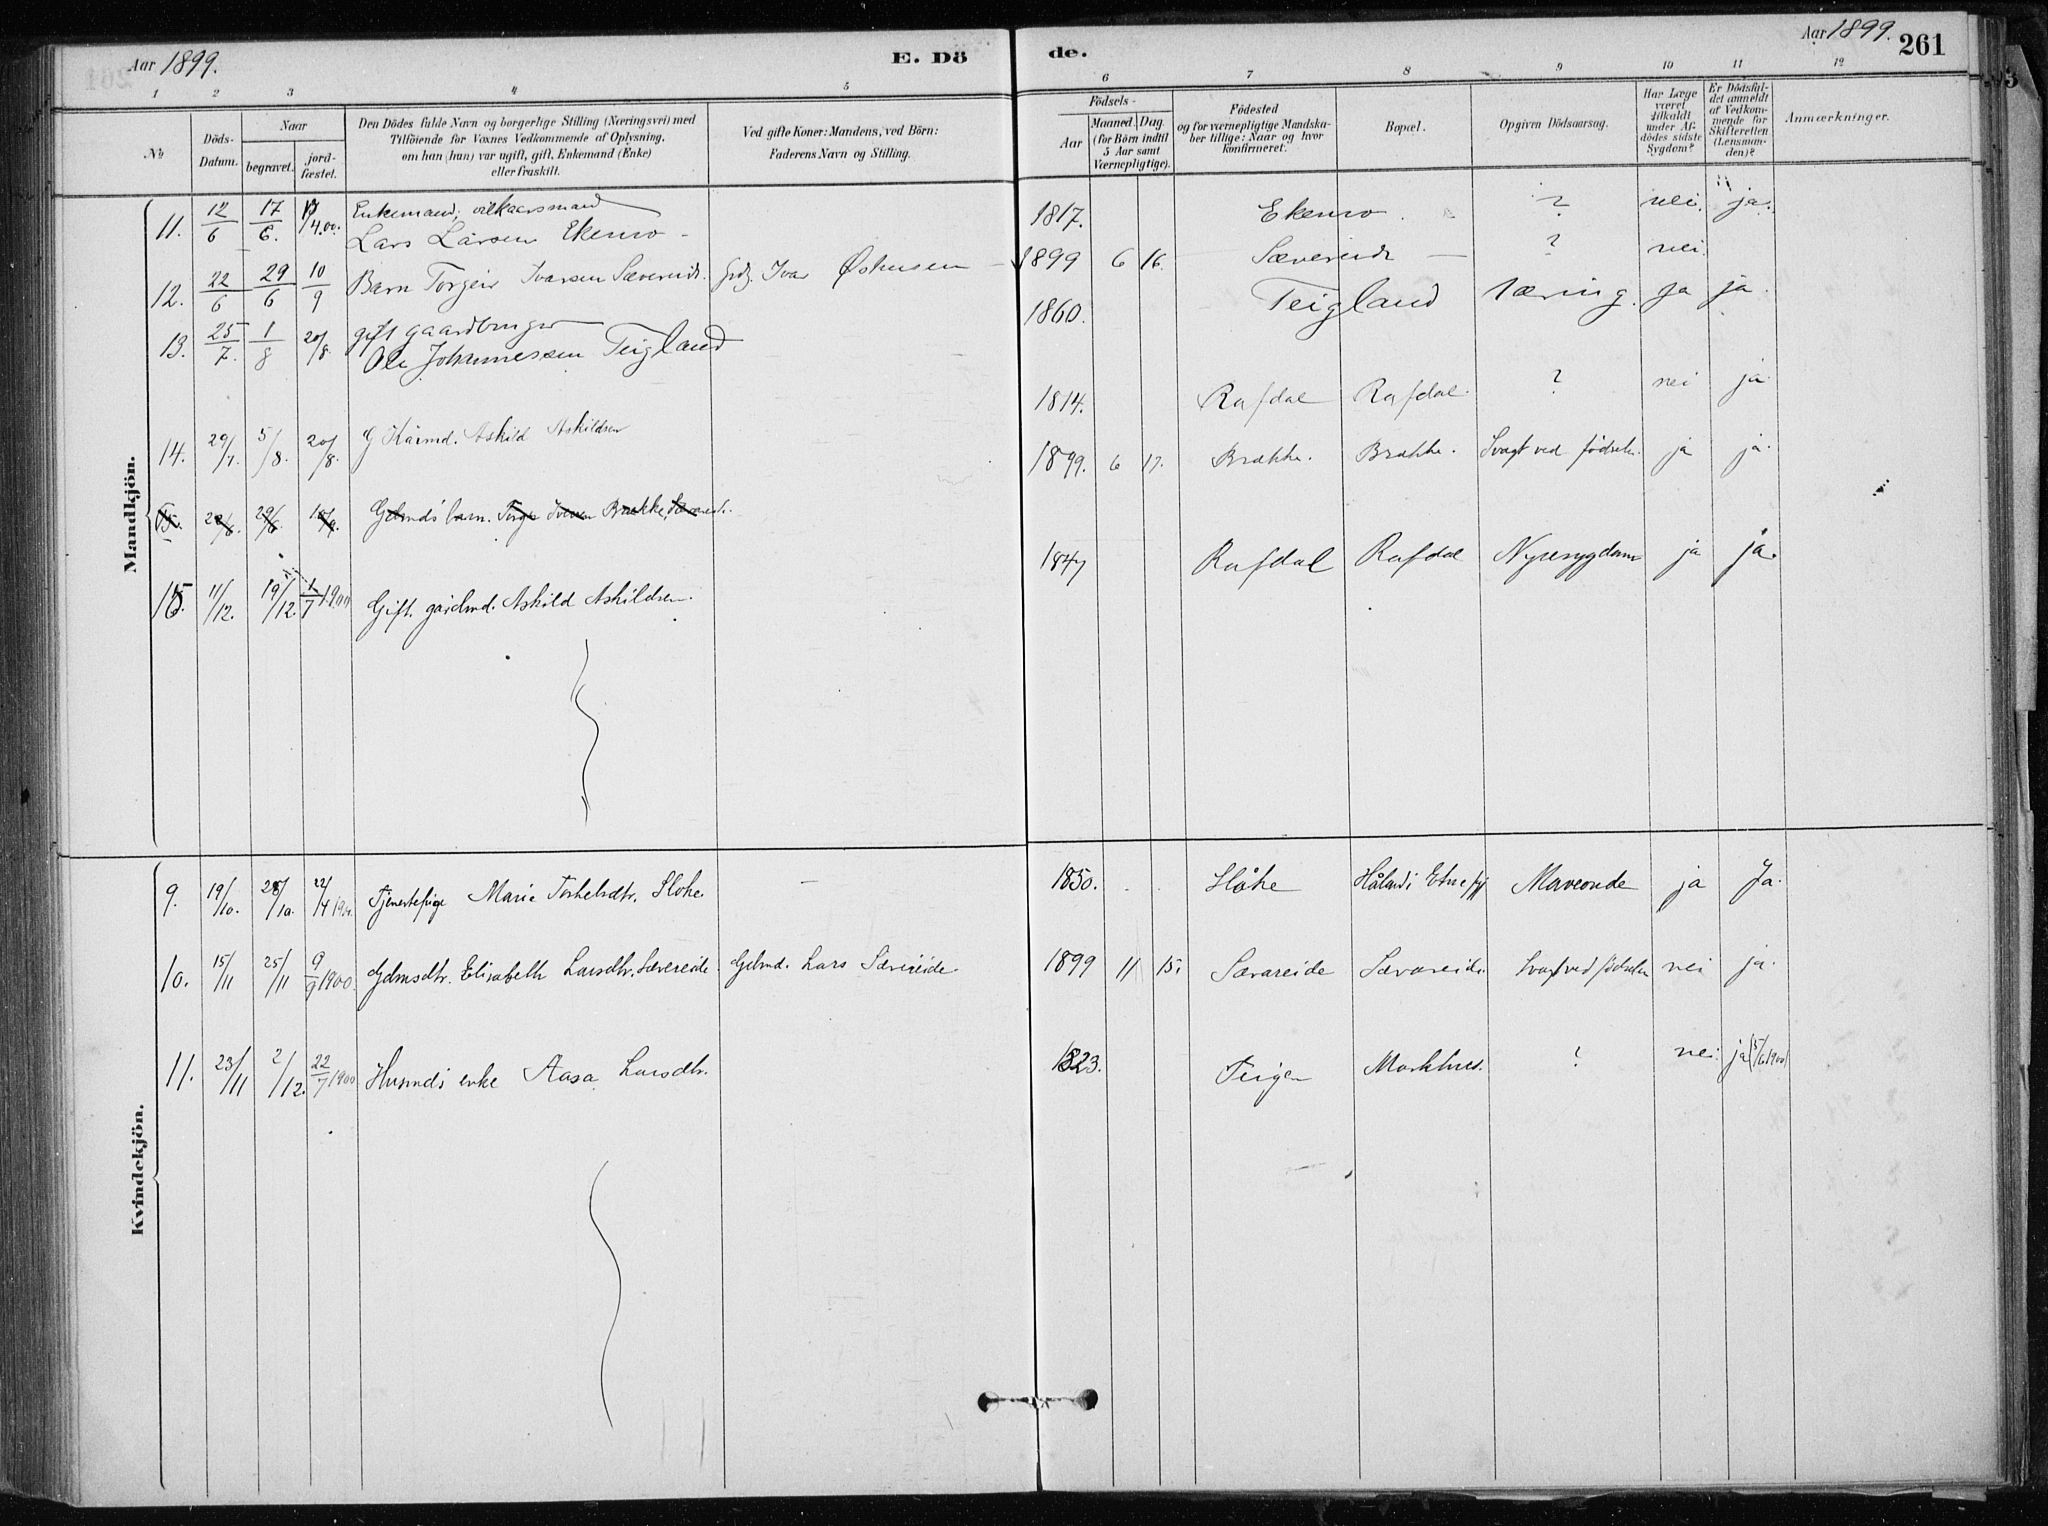 Aar 1899.
E. Dö
de.
Aar 1899.
261
1 2 3 4 5 6 7 8 9 10 11 12
No
Döds-
Datum.
Naar
begravet.
jord-
fæstet.
Den Dödes fulde Navn og borgerlige Stilling (Næringsvei) med
Tilföiende for Voxnes Vedkommende af Oplysning,
om han (hun) var ugift, gift, Enkemand (Enke)
eller fraskilt.
Ved gifte Koner: Mandens, ved Börn:
Faderens Navn og Stilling.
Födsels-
Aar
Maaned.
Dag.
(for Börn indtil
5 Aar samt
Værnepligtige).
Födested
og for værnepligtige Mandska-
ber tillige: Naar og hvor
konfirmeret.
Bopæl.
Opgiven Dödsaarsag.
Har Læge
været
tilkaldt
under Af-
dödes sidste
Sygdom?
Er Dödsfal-
det anmeldt
af Vedkom-
mende for
Skifteretten
(Lensman-
den)?
Anmærkninger.
Mandkjön.
11. 12/6 17/6. 17/4.00. Enkemand, vilkaarsmand
Lars Larsen Ekemo - 1817. Ekemo. ? nei. ja.
12. 22/6 29/6 10/9 Barn Torgeir Ivarsen Sævereide. Grdbr. Ivar Østensen 1899 6 16. Sævereide - ? nei.
13. 25/7. 1/8 20/8. gift gaardbruger
Ole Johannessen Teigland 1860. Teigland Tæring. ja ja.
14. 29/7. 5/8. 20/8. G Kårmd. Askild Askildsen 1814. Rafdal Rafdal. ? nei ja
15. 22/6. 29/6. 10/9. Gdmds barn. Torgr Iversen Brække, 1899. 6 17. Brække. Brække. Svagt ved fødselen ja ja.
15. 11/12. 19/12. 1/7 1900 Gift. gårdmd. Askild Askildsen. 1847 Rafdal Rafdal Nyresygdom ja ja.
Kvindekjön.
9. 19/10. 28/10. 22/4 1900. Tjenestepige Marie Torkelsdtr. Sloke. - 1850. Slåke Håland i Etne Mavonde ja Ja.
10. 15/11 25/11 9/9 1900. Gdmsdtr. Elisabeth Larsdtr. Sævereide. Gdmd. Lars Sævereide. 1899 11 15. Sævareide Sævareide. Svag ved fødselen nei ja.
11. 23/11 2/12. 22/7 1900 Husmds enke Aasa Larsdtr. 1823. Teigen Markhus. ? nei ja (5/6 1900)